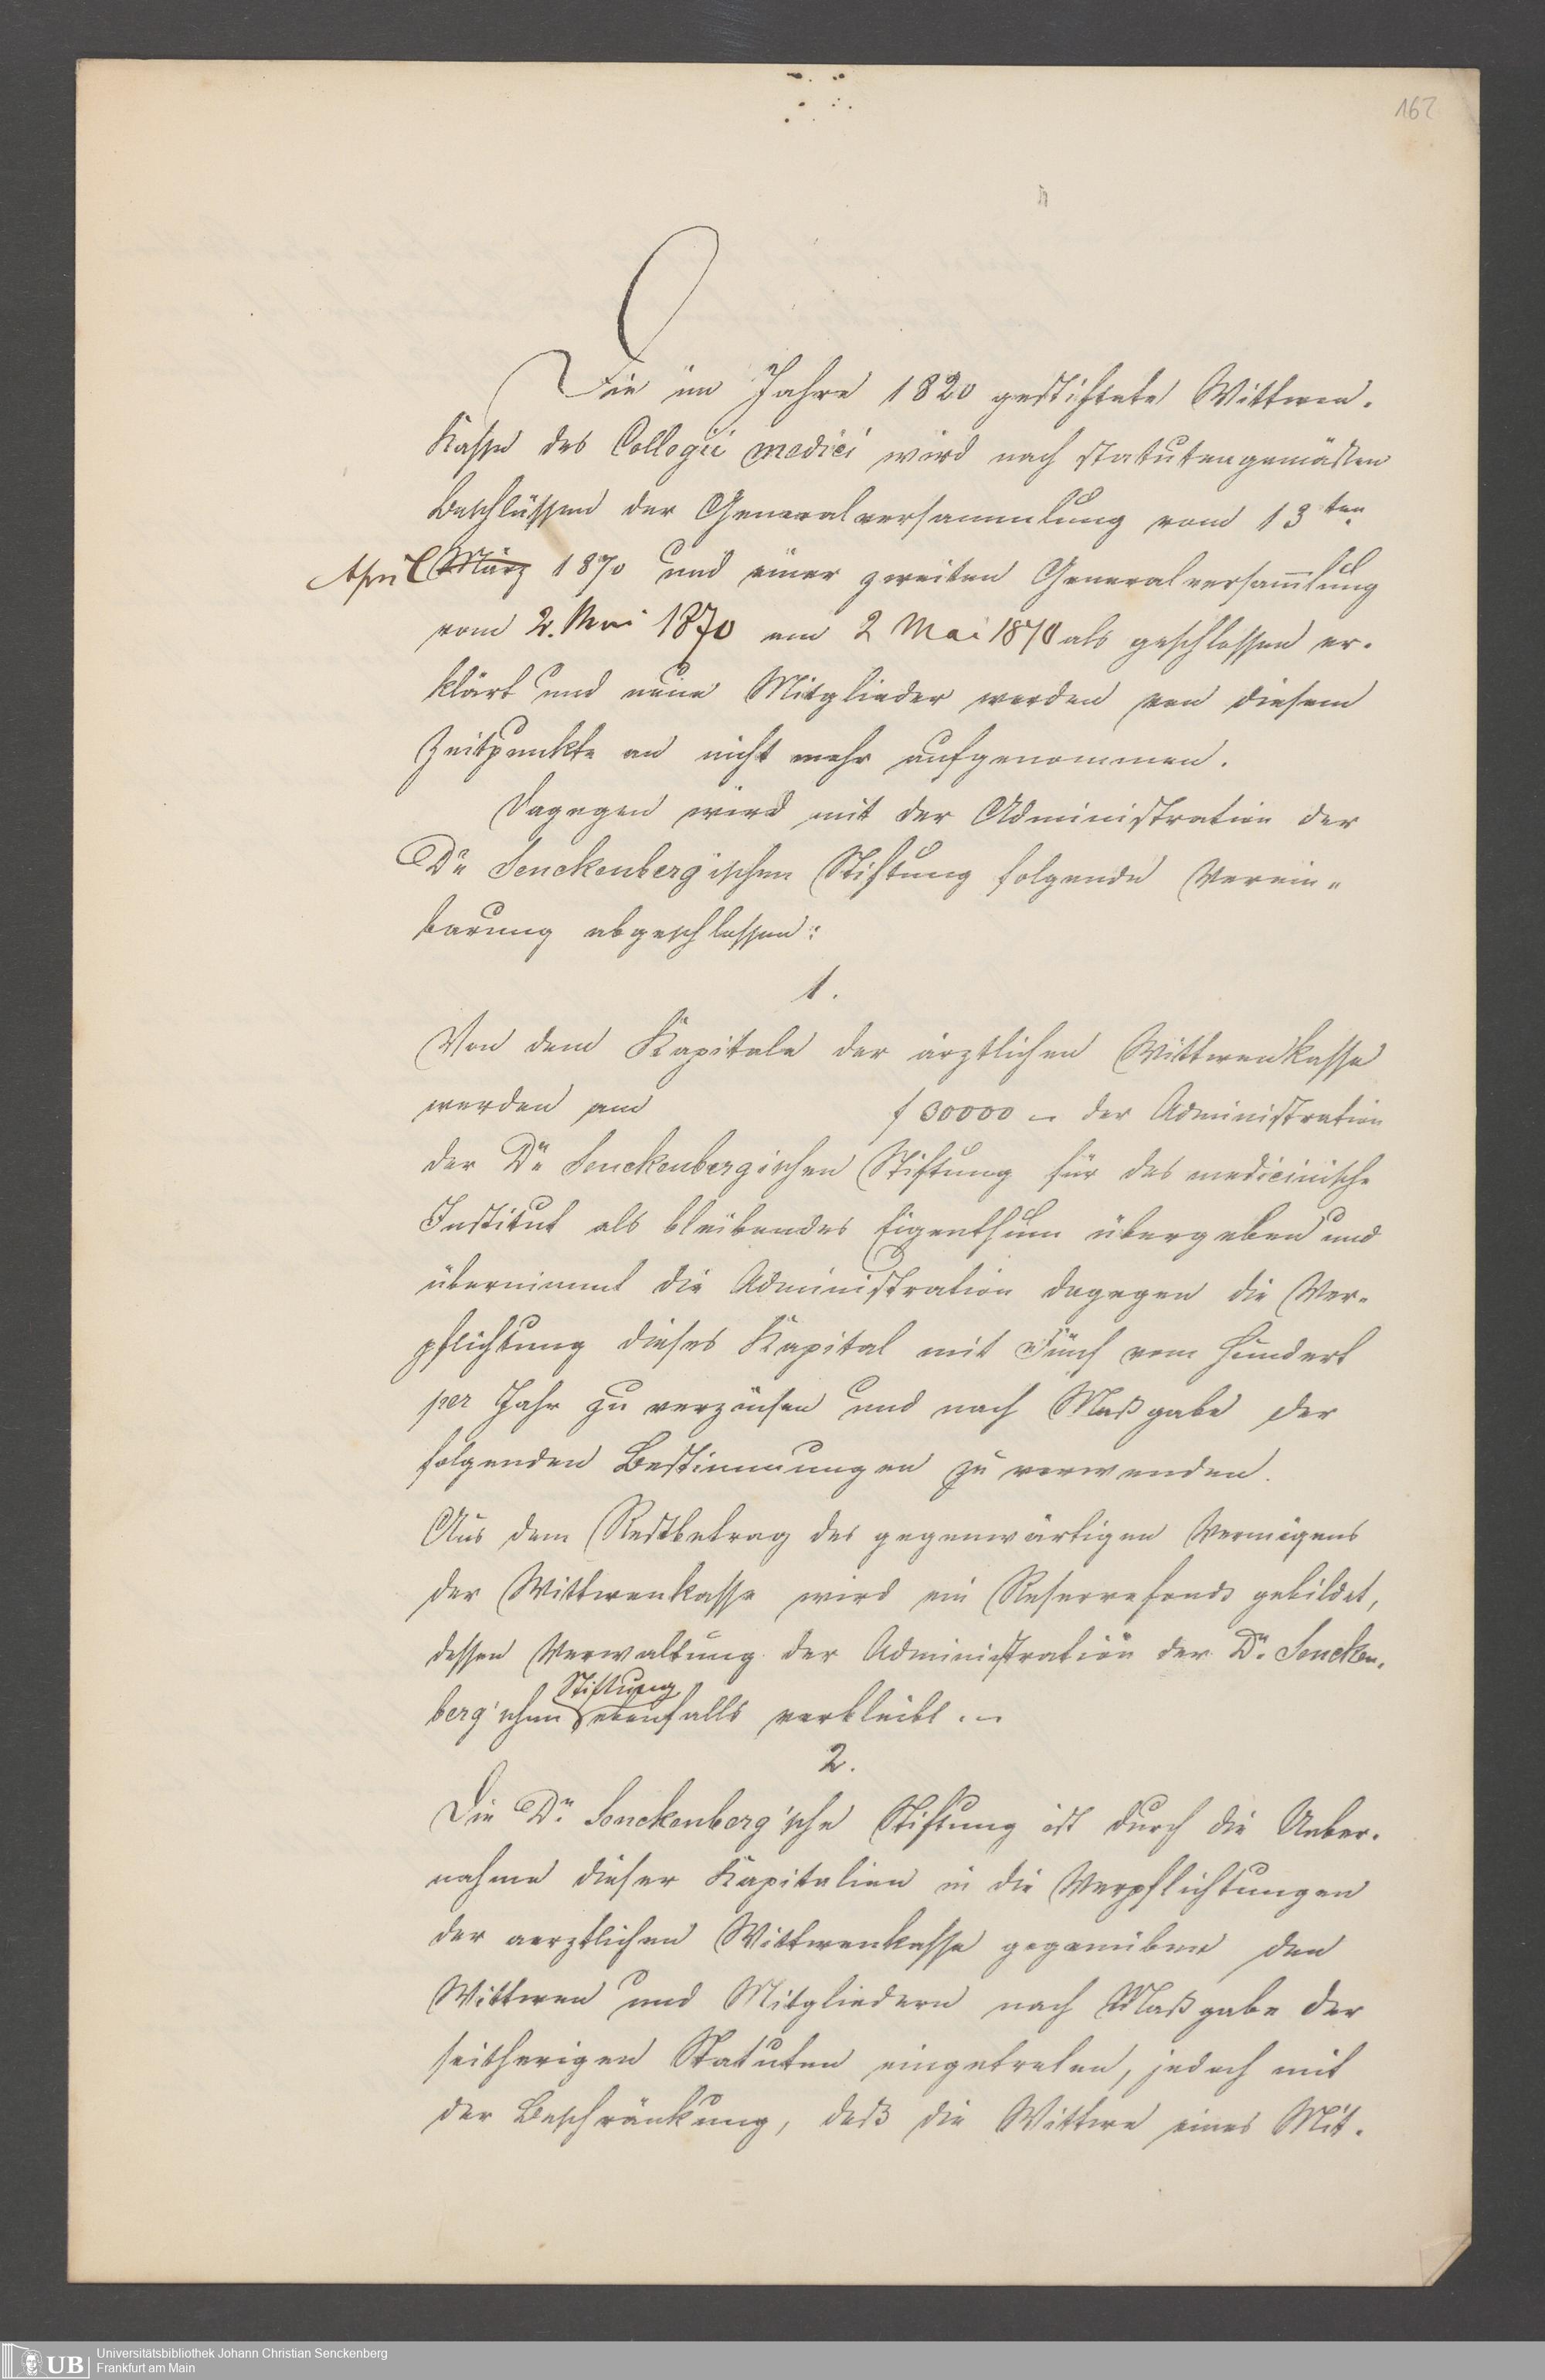 162
Die im Jahre 1820 gestiftete Wittwen-
Kasse des Collegii medici wird nach statutengemäßen
Beschlüssen der Generalversammlung vom 13ten
April März 1870 und einer zweiten Generalversam̅lung
vom 2. Mai 1870 am 2 Mai 1870 als geschlossen er-
klärt und neue Mitglieder werden von diesem
Zeitpunkte an nicht mehr aufgenommen.
Dagegen wird mit der Administration der
Dr Senckenbergischen Stiftung folgende Verein-
barung abgeschlossen:
1.
Von dem Kapitale der ärztlichen Wittwenkasse
werden am f 30000 – der Administration
der Dr Senckenbergischen Stiftung für das medicinische
Institut als bleibendes Eigenthum übergeben und
übernimmt die Administration dagegen die Ver-
pflichtung dieses Kapital mit Fünf vom Hundert
per Jahr zu verzinsen und nach Maßgabe der
folgenden Bestimmungen zu verwenden.
Aus dem Restbetrag des gegenwärtigen Vermögens
der Wittwenkasse wird ein Reservefonds gebildet,
dessen Verwaltung der Administration der Dr. Sencken-
Stiftung
berg'schen ebenfalls verbleibt. –
2.
Die Dr. Senckenberg'sche Stiftung ist durch die Ueber-
nahme dieser Kapitalien in die Verpflichtungen
der aerztlichen Wittwenkasse gegenüber den
Wittwen und Mitgliedern nach Maßgabe der
seitherigen Statuten eingetreten, jedoch mit
der Beschränkung, daß die Wittwe eines Mit-
UB
Universitätsbibliothek Johann Christian Senckenberg
Frankfurt am Main